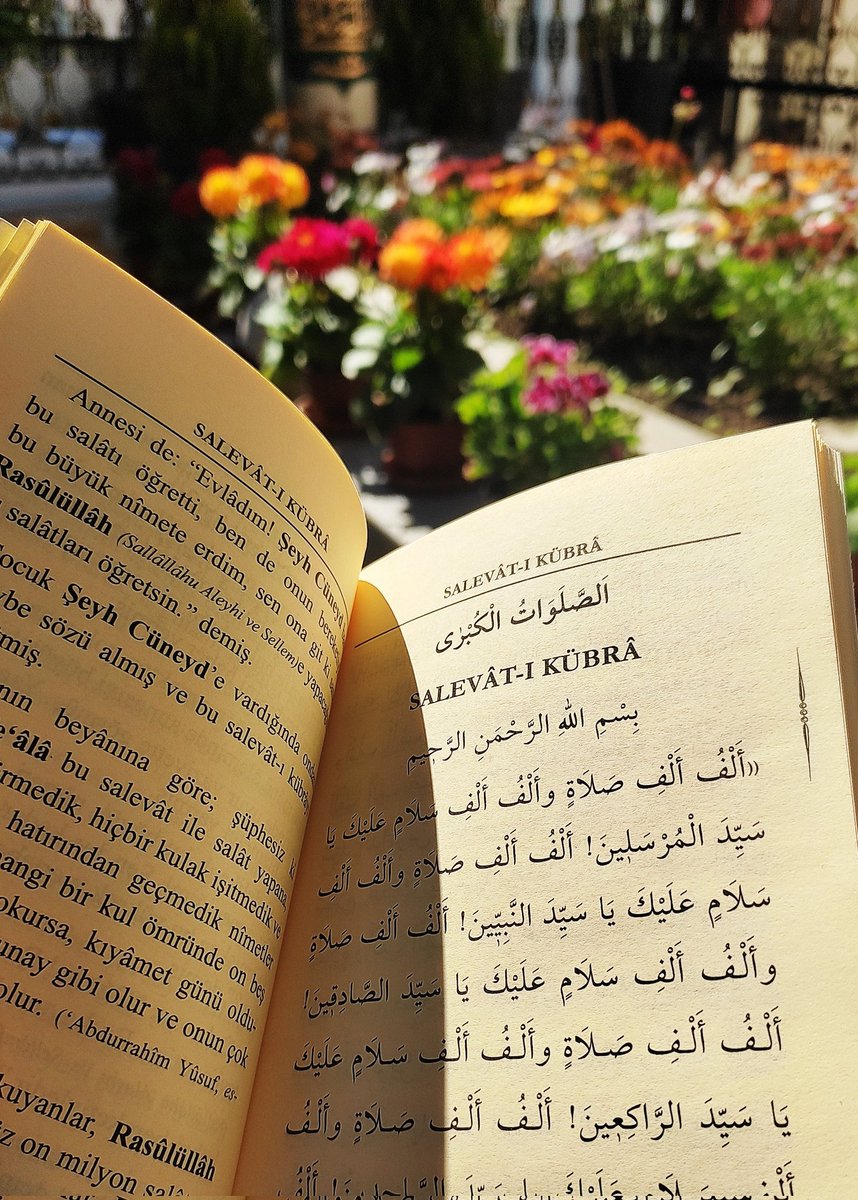 SALEVÂT-I KÜBRÂ
Annesi de: “Evlâdım! Şeyh Cüneyd
bu salâtı öğretti, ben de onun bereke
bu büyük nîmete erdim, sen ona git ki
Rasûlüllâh (Sallâllâhu Aleyhi ve Sellem)e yapaca
salâtları öğretsin.” demiş.
Çocuk Şeyh Cüneyd’e vardığında on
be sözü almış ve bu salevât-ı kübrâ
miş.
nın beyânına göre; şüphesiz
e‘âlâ bu salevât ile salât yapana
irmedik, hiçbir kulak işitmedik ve
hatırından geçmedik nîmetler
angi bir kul ömründe on beş
okursa, kıyâmet günü oldu-
unay gibi olur ve onun çok
olur. (‘Abdurrahîm Yûsuf, es-
kuyanlar, Rasûlüllâh
z on milyon salâ
SALEVÂT-I KÜBRÂ
اَلصَّلَوَاتُ الْكُبْرٰى
SALEVÂT-I KÜBRÂ
بِسْمِ اللهِ الرَّحْمَنِ الرَّحِيمِ
«أَلْفُ أَلْفِ صَلَاةٍ وأَلْفُ أَلْفِ سَلَامٍ عَلَيْكَ يَا
سَيِّدَ الْمُرْسَلِينَ! أَلْفُ أَلْفِ صَلَاةٍ وأَلْفُ أَلْفِ
سَلَامٍ عَلَيْكَ يَا سَيِّدَ النَّبِيِّينَ! أَلْفُ أَلْفِ صَلَاةٍ
وأَلْفُ أَلْفِ سَلَامٍ عَلَيْكَ يَا سَيِّدَ الصَّادِقِينَ!
أَلْفُ أَلْفِ صَلَاةٍ وأَلْفُ أَلْفِ سَلَامٍ عَلَيْكَ
يَا سَيِّدَ الرَّاكِعِينَ! أَلْفُ أَلْفِ صَلَاةٍ وأَلْفُ